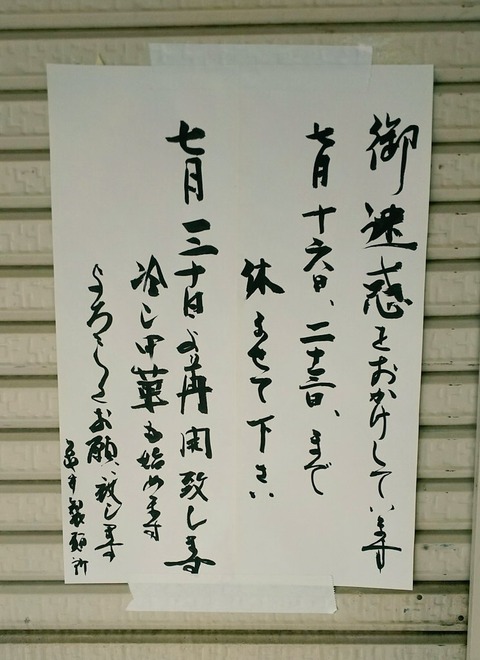 御迷惑をおかけしています
七月十六日、二十三日、まで
休ませて下さい
七月三十日より再開致します
冷し中華も始めます
よろしくお願い致します
製麺所